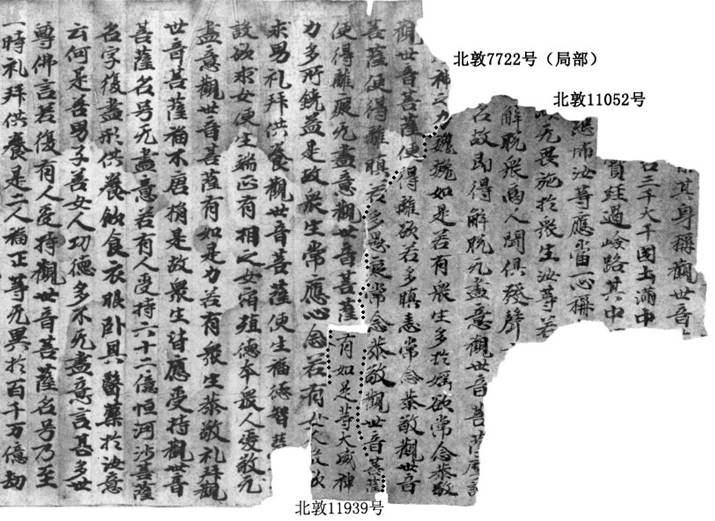 北敦7722号（局部）
北敦11052号
其身稱觀世音
三千大千国土滿中
經過嶮路其中
恐怖汝等應當一心稱
以无畏施於衆生汝等若
解脫衆商人聞俱發聲
名故即得解脫无盡意觀世音菩薩摩訶
神之力巍巍如是若有衆生多於婬欲常念恭敬
觀世音菩薩便得離欲若多瞋恚常念恭敬觀世音
菩薩便得離瞋若多愚癡常念恭敬觀世音菩薩
便得離癡无盡意觀世音菩薩有如是等大威神
力多所饒益是故衆生常應心念若有女人設欲
求男礼拜供養觀世音菩薩便生福德智慧
設欲求女便生端正有相之女宿殖德本衆人愛敬无
盡意觀世音菩薩有如是力若有衆生恭敬礼拜觀
世音菩薩福不唐捐是故衆生皆應受持觀世音
菩薩名号无盡意若有人受持六十二億恒河沙菩薩
名字復盡形供養飲食衣服卧具醫藥於汝意
云何是善男子善女人功德多不无盡意言甚多世
尊佛言若復有人受持觀世音菩薩名号乃至
一時礼拜供養是二人福正等无異於百千万億劫
北敦11939号